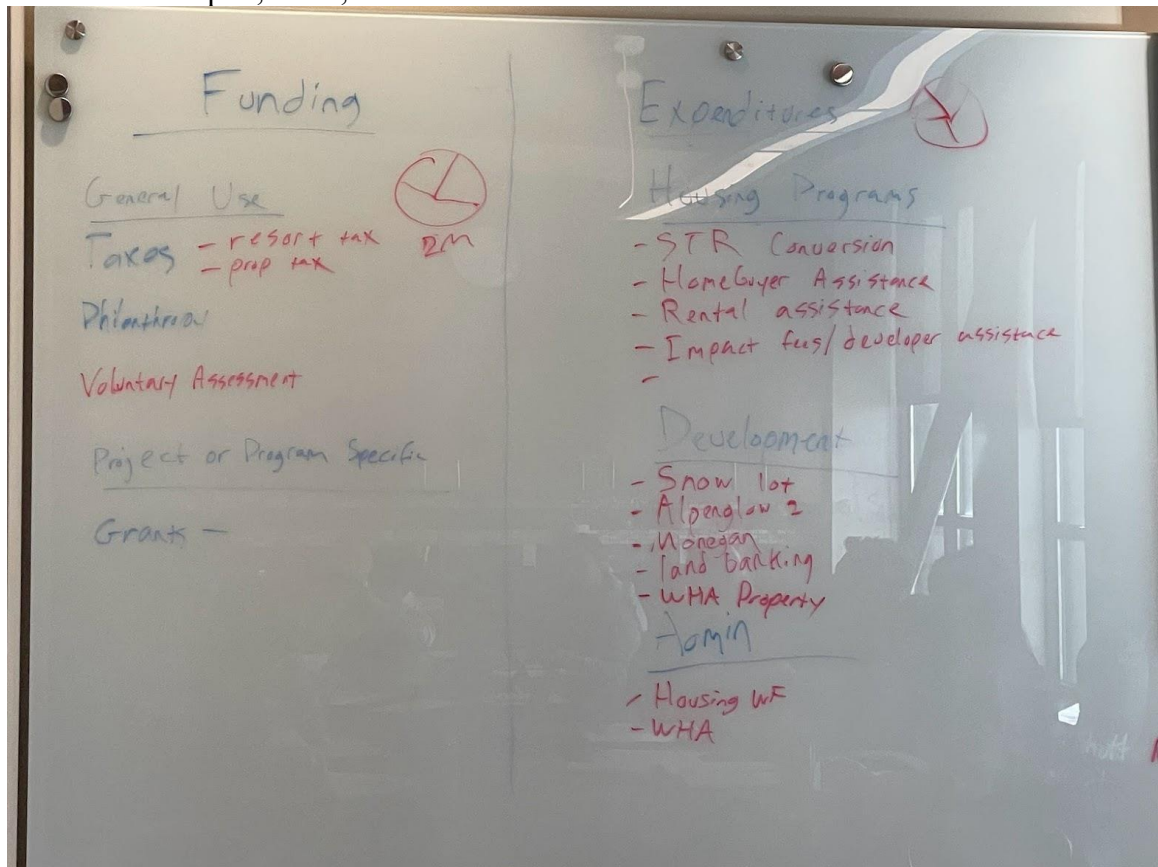 Funding
General Use
Taxes - resort tax
- prop tax
2M
Philanthropy
Voluntary Assessment
Project or Program Specific
Grants -
Expenditures
Housing Programs
- STR Conversion
- Homebuyer Assistance
- Rental assistance
- Impact fees/developer assistance
-
Development
- Snow lot
- Alpenglow 2
- Monegan
- land banking
- WHA Property
Admin
- Housing WF
- WHA